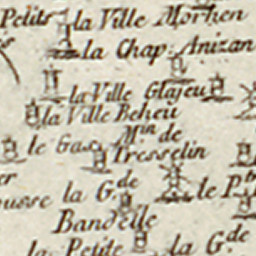 Petits la Ville Morhen
la Chap. Anizan
la Ville Glajeu
la Ville Beheu
le Gas M.in de
Tresselin
ousse la G.de le P.t
Bandelle
la Petite la G.de